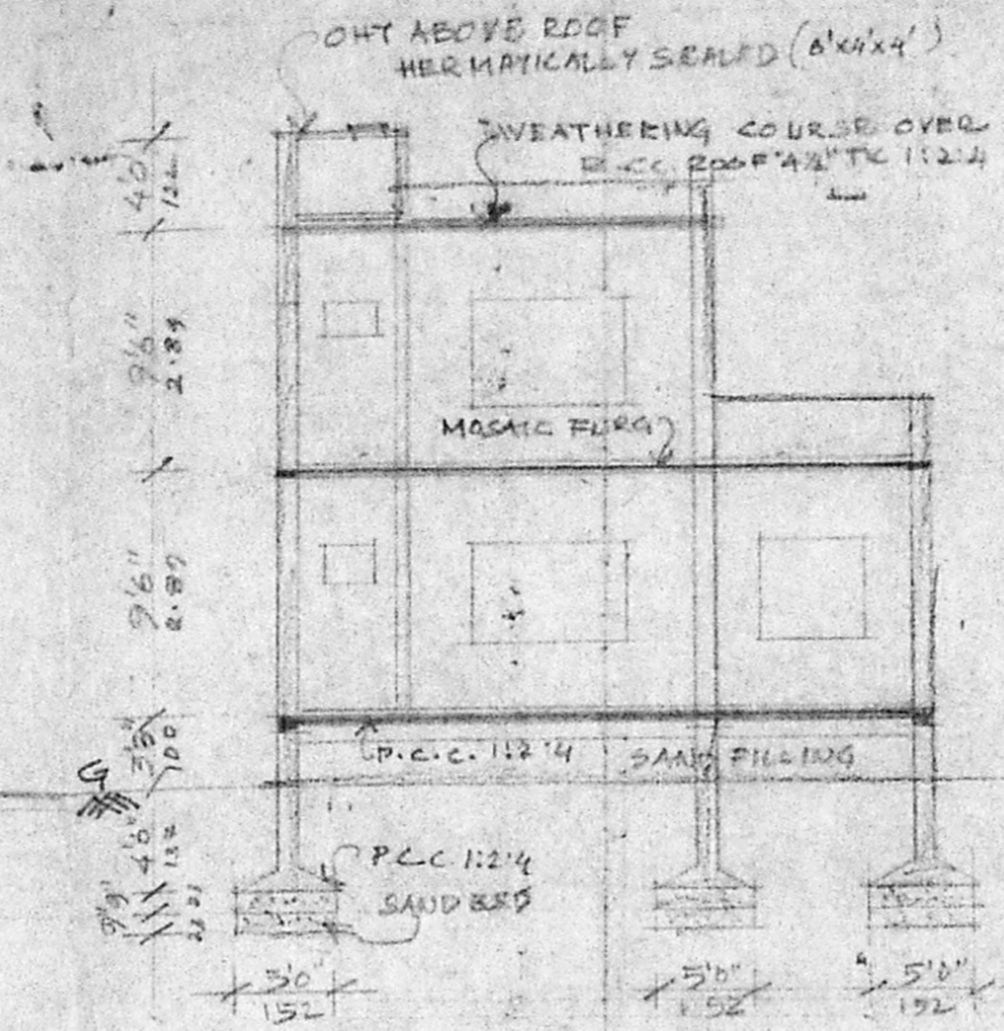 OHT ABOVE ROOF
HERMATICALLY SEALED (8'x4'x4')
WEATHERING COURSE OVER
R.C.C. ROOF 4½" TK 1:2:4
4'0"
122
9'6"
2.89
MOSAIC FLRG
9'6"
2.89
3'3"
100
G
P.C.C. 1:2:4
SAND FILLING
4'6"
132
P.C.C 1:2:4
SAND BED
9"9"
3'0"
152
5'0"
152
5'0"
152